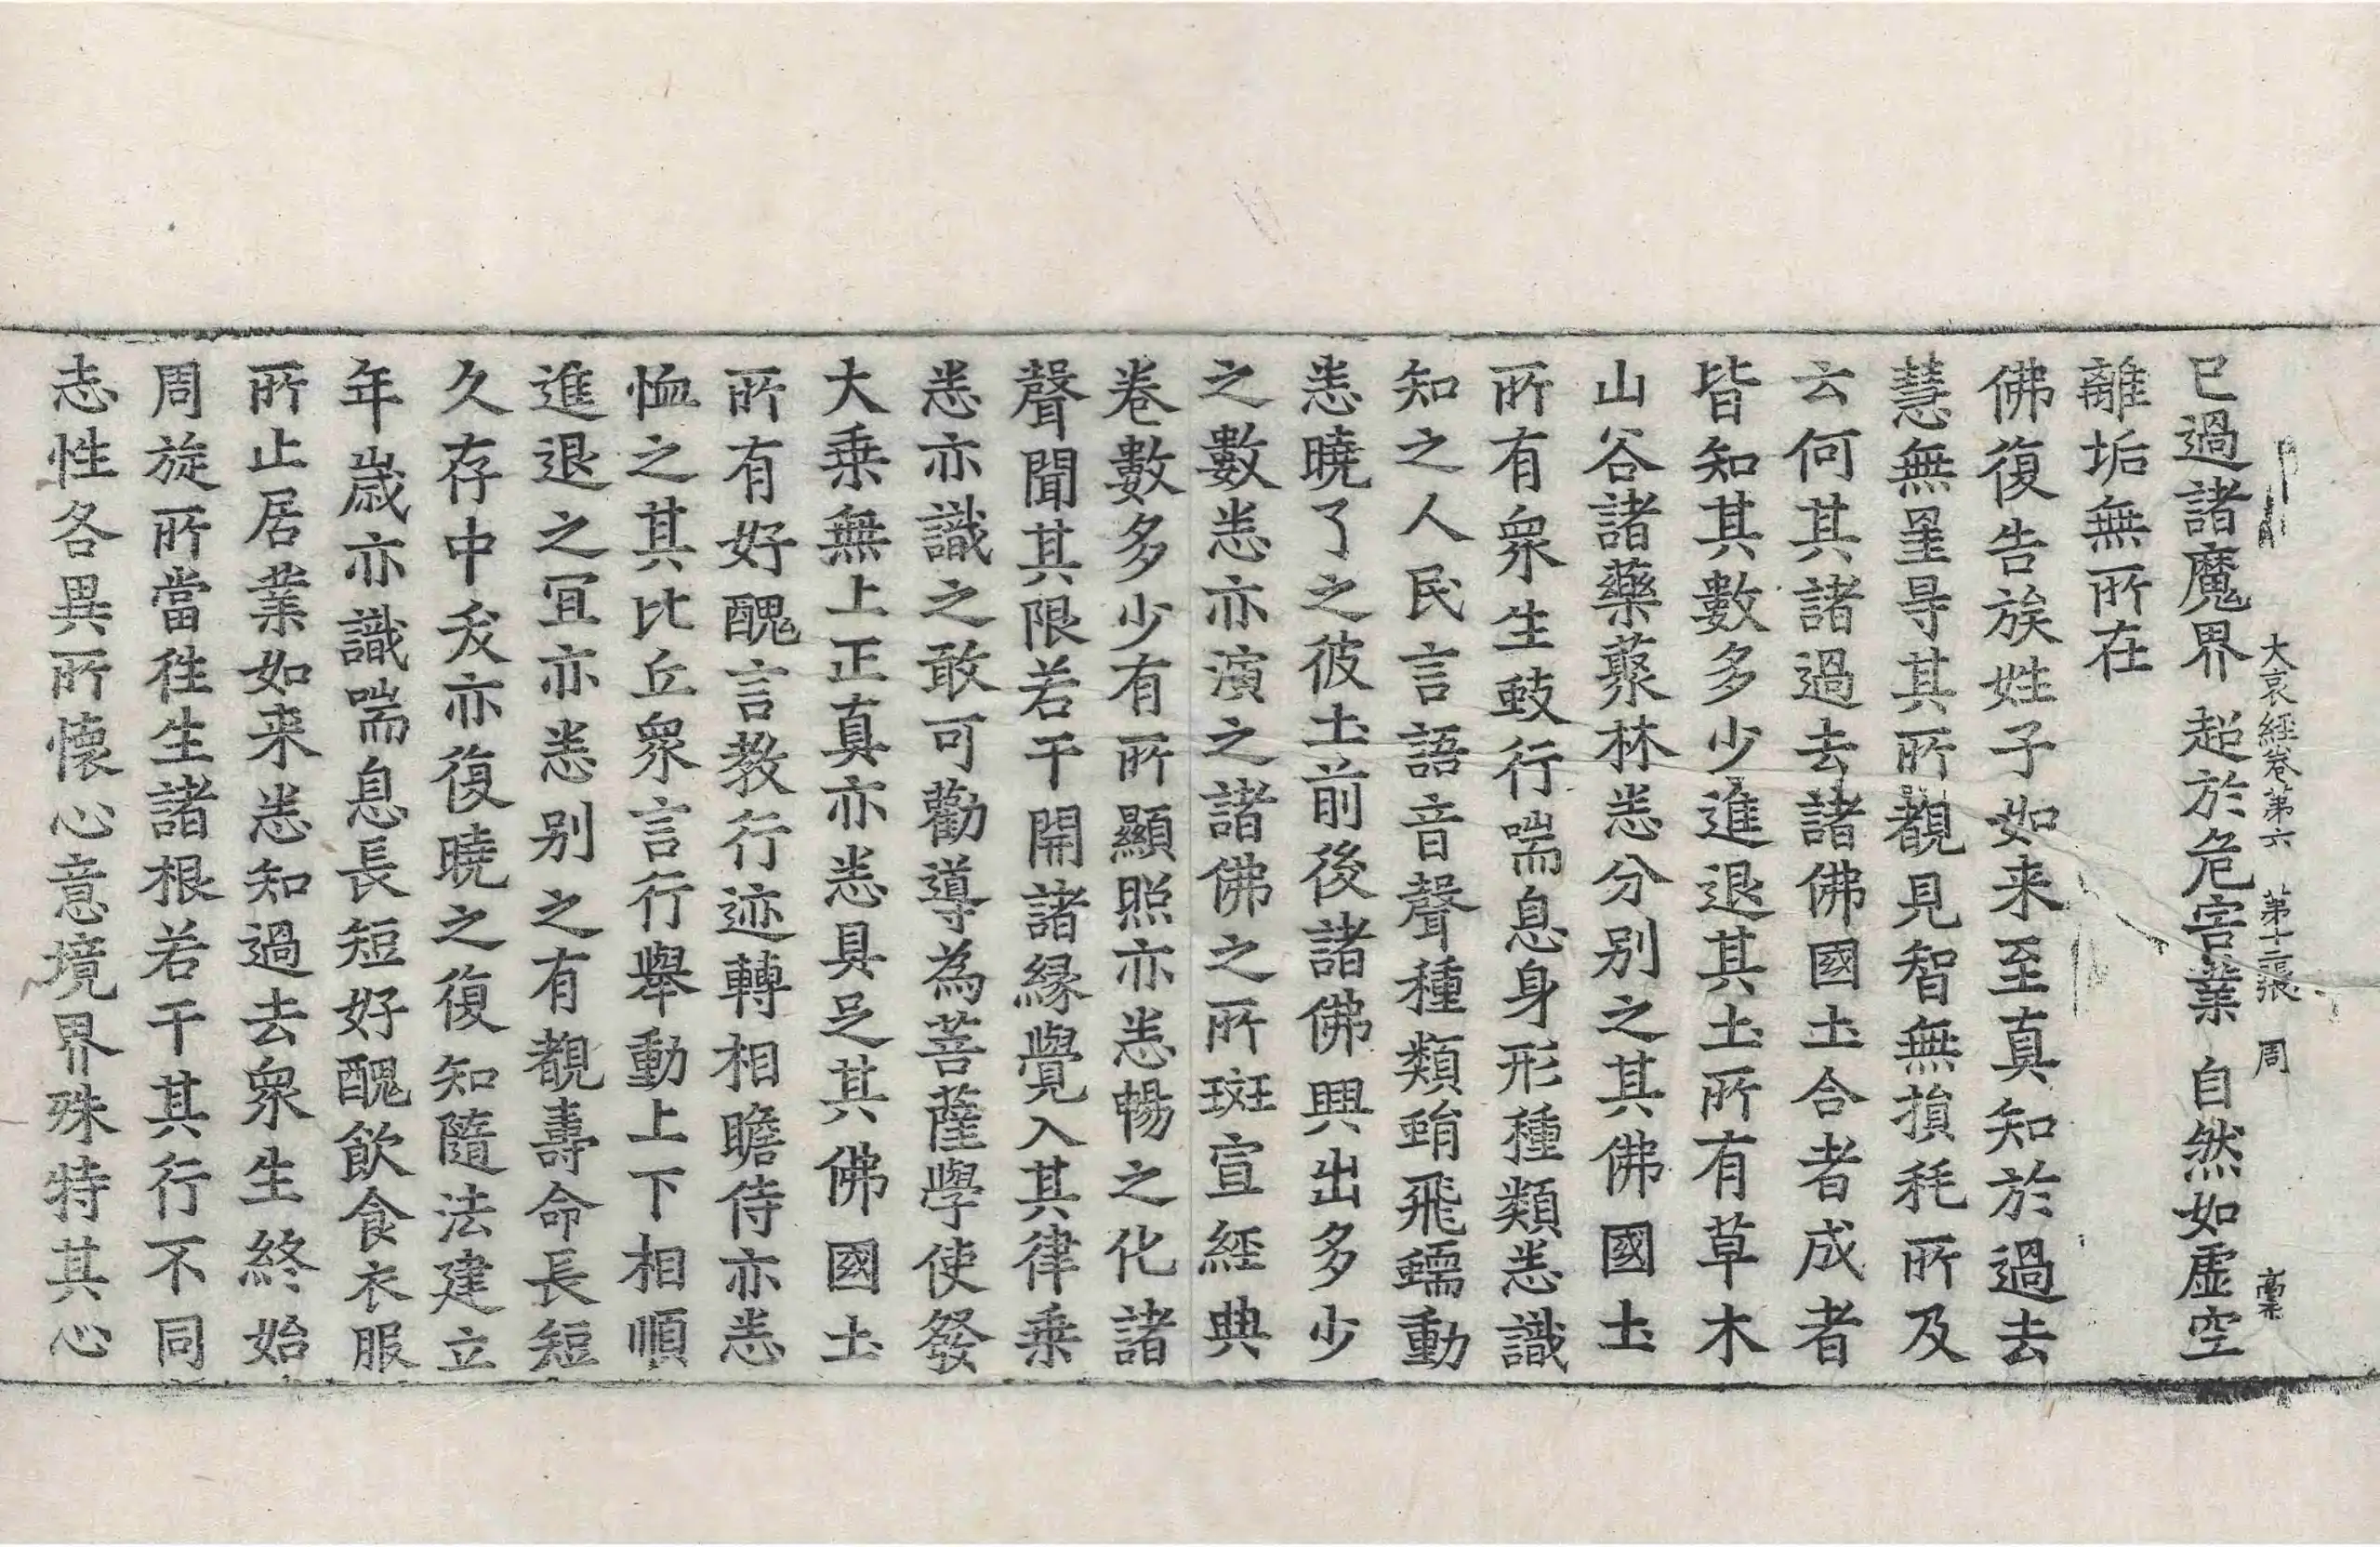 大哀經卷第六　第十二張　周　稾
已過諸魔界　超於危害業　自然如虛空
離垢無所在
佛復告族姓子如来至真知於過去
慧無罣㝵其所覩見智無損耗所及
云何其諸過去諸佛國土合者成者
皆知其數多少進退其土所有草木
山谷諸藥藂林悉分别之其佛國土
所有衆生蚑行喘息身形種類悉識
知之人民言語音聲種類蜎飛蠕動
悉曉了之彼土前後諸佛興出多少
之數悉亦演之諸佛之所班宣經典
卷數多少有所顯照亦悉暢之化諸
聲聞其限若干開諸縁覺入其律乗
悉亦識之敢可勸導為菩薩學使發
大乗無上正真亦悉具足其佛國土
所有好醜言教行迹轉相瞻侍亦悉
恤之其比丘衆言行舉動上下相順
進退之冝亦悉别之有覩壽命長短
久存中夭亦復曉之復知隨法建立
年歳亦識喘息長短好醜飲食衣服
所止居業如来悉知過去衆生終始
周旋所當徃生諸根若干其行不同
志性各異所懐心意境界殊特其心